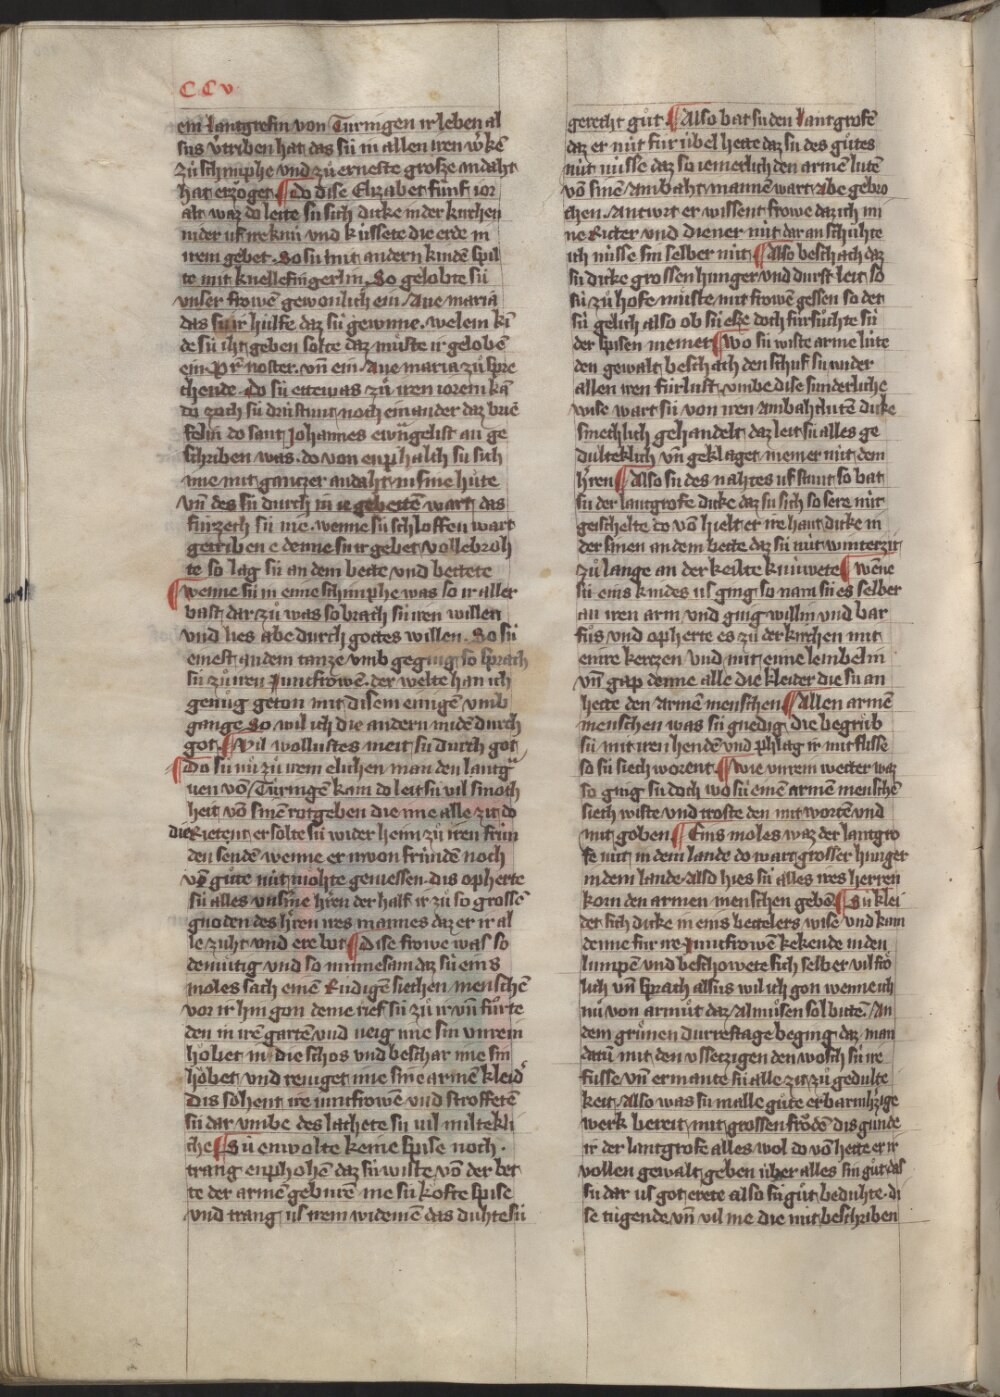 CCv
ein lantgrefin von Túringen ir leben al
sus v̓triben hat das sú in allen iren w̓kē
zů schimphe vnd zů erneste grosze andaht
hat erzöget ¶ do dise Elizabet fúnf ior
alt waz do leite sú sich dicke in der kirchen
nider uf ire knú vnd kussete die erde in
irem gebet. So sú mit andern kindē spil
te mit knellefingerlin. So gelobte sú
vnser frowē gewonlich ein Aue maria
das su ir hulfe daz sú gewinne. welem ki
de sú iht geben solte daz můste ir gelobē
ein pr̄ noster. vn̄ ein Aue maria zů spre
chende. do sú ettewas zů iren ioren kā
do zoch sú dristunt noch ein ander daz brie
felin do sant Johannes ewāgelist an ge
schriben was. do von enphalch sú sich
ime mit ganczer andaht in sine hůte
vn̄ des sú durch in ie gebettē wart das
finzech sú nie. wenne sú schloffen wart
getriben e denne su ir gebet vollebroh
te so lag sú an dem bette vnd bettete
¶ wenne sú in enne schimphe was so ir aller
bast dar zů was so brach sú iren willen
vnd lies abe durch gottes willen. So sú
einest an dem tanze vmb geging so sprach
sú zů iren Juncfrowē. der welte han ich
genůg geton mit disem einigen vmb
gange so wil ich die andern midē durch
got. ¶ vil wollustes meit sú durch got
¶ Do sú nú zů irem elichen man den lantg
uen vō Túringē kam do leit sú vil smoch
heit vō sinē rotgeben die ime alle zit do
die Rietent er solte sú wider heim zů iren frún
den sendē wenne er nvon frúndē noch
vō gůte nút möhte geniessen dis opherte
sú alles vnsme hren der half ir zů so grossē
gnoden des hren ires mannes daz er ir al
le zuht vnd ere bot ¶ Dise frowe was so
demútig vnd so minnesam daz sú eins
moles sach einē Rudigē siechen menschē
vor ir hin gon deme rief sú zů ir vn̄ fůrte
den in irē gartē vnd neig ime sin vnrein
höbet in die schos vnd beschar ime sin
höbet vnd reiniget ime sine armē kleid̓
Dis sohent ire iuncfrowē vnd stroffetē
sú dar vmbe des lachete sú vil miltekli
che ¶ Sú enwolte keine spise noch
trang enphohē daz sú wiste vō der bet
te der armē geburē me sú kofte spise
vnd trang us irem widemē das duhte sú
gerecht gůt ¶ Also bat su den lantgrofē
daz er nút fur úbel hette daz sú des gůtes
nút nússe daz so iemerlich den armē lutē
vō sinē Ambaht mannē wart abe gebro
chen. Antwrt er wissent frowe daz ich mi
ne Ricter vnd diener nút dar an schúhte
ich nússe sin selber nút ¶ Also beschach daz
sú dicke grossen hunger vnd durst leit so
sú zů hofe můste mit frowē gessen so det
sú gelich also ob sú esze doch fúrsůchte sú
der spisen niemer ¶ wo sú wiste arme lúte
den gewalt beschach den schůf sú wider
allen iren fúrlust vmbe dise sunderliche
wise wart sú von iren Ambahtlutē dicke
smechlich gehandelt daz leit sú alles ge
dulteklich vn̄ geklaget niemer nút dem
hren ¶ Also sú des nahtes uf stunt so bat
sú der lantgrofe dicke daz su sich so sere nút
geischelte do vō hielt er ire hant dicke in
der sinen an dem bette daz sú nút winterzit
zů lange an der kelte knúwete ¶ wēne
sú eins kindes us ging so nam sú es selber
an iren arm vnd ging willin vnd bar
fůs vnd opherte es zů der kirchen mit
einre kerczen vnd mit enne lembelin
vn̄ gap denne alle die kleider die sú an
hette den armē menschen ¶ Allen armē
menschen was sú gnedig die begrůb
sú mit iren hendē vnd phlag ir mit flisse
so sú siech worent ¶ wie vnrem wetter waz
so ging sú doch wo sú einē armē menschē
siech wiste vnd troste den mit wortē vnd
mit goben ¶ Eins moles waz der lantgro
fe nút in dem lande do wart grosser hunger
in dem lande. Also hies sú alles ires herren
korn den armen menschen gebē ¶ Sú klei
der sich dicke in eins bettelers wise vnd kam
denne fur ire Juncfrowē kekende in den
lumpē vnd beschowete sich selber vil frö
lich vn̄ sprach alsús wil ich gon wenne ich
nú von armůt daz Almůsen sol bittē. An
dem grůnen dunrestage beging daz man
datū mit den vssetzigen den wosch sú ire
fússe vn̄ ermante sú alle zit zů gedulte
keit. Also was sú in alle gůte erbarmh̓zige
werk bereit mit grossen frödē dis gunde
ir der lantgrofe alles wol do vō hette er ir
vollen gewalt geben úber alles sin gůt das
sú dar us got erete also sú gůt beduhte. di
se tugende vn̄ vil me die nút beschriben